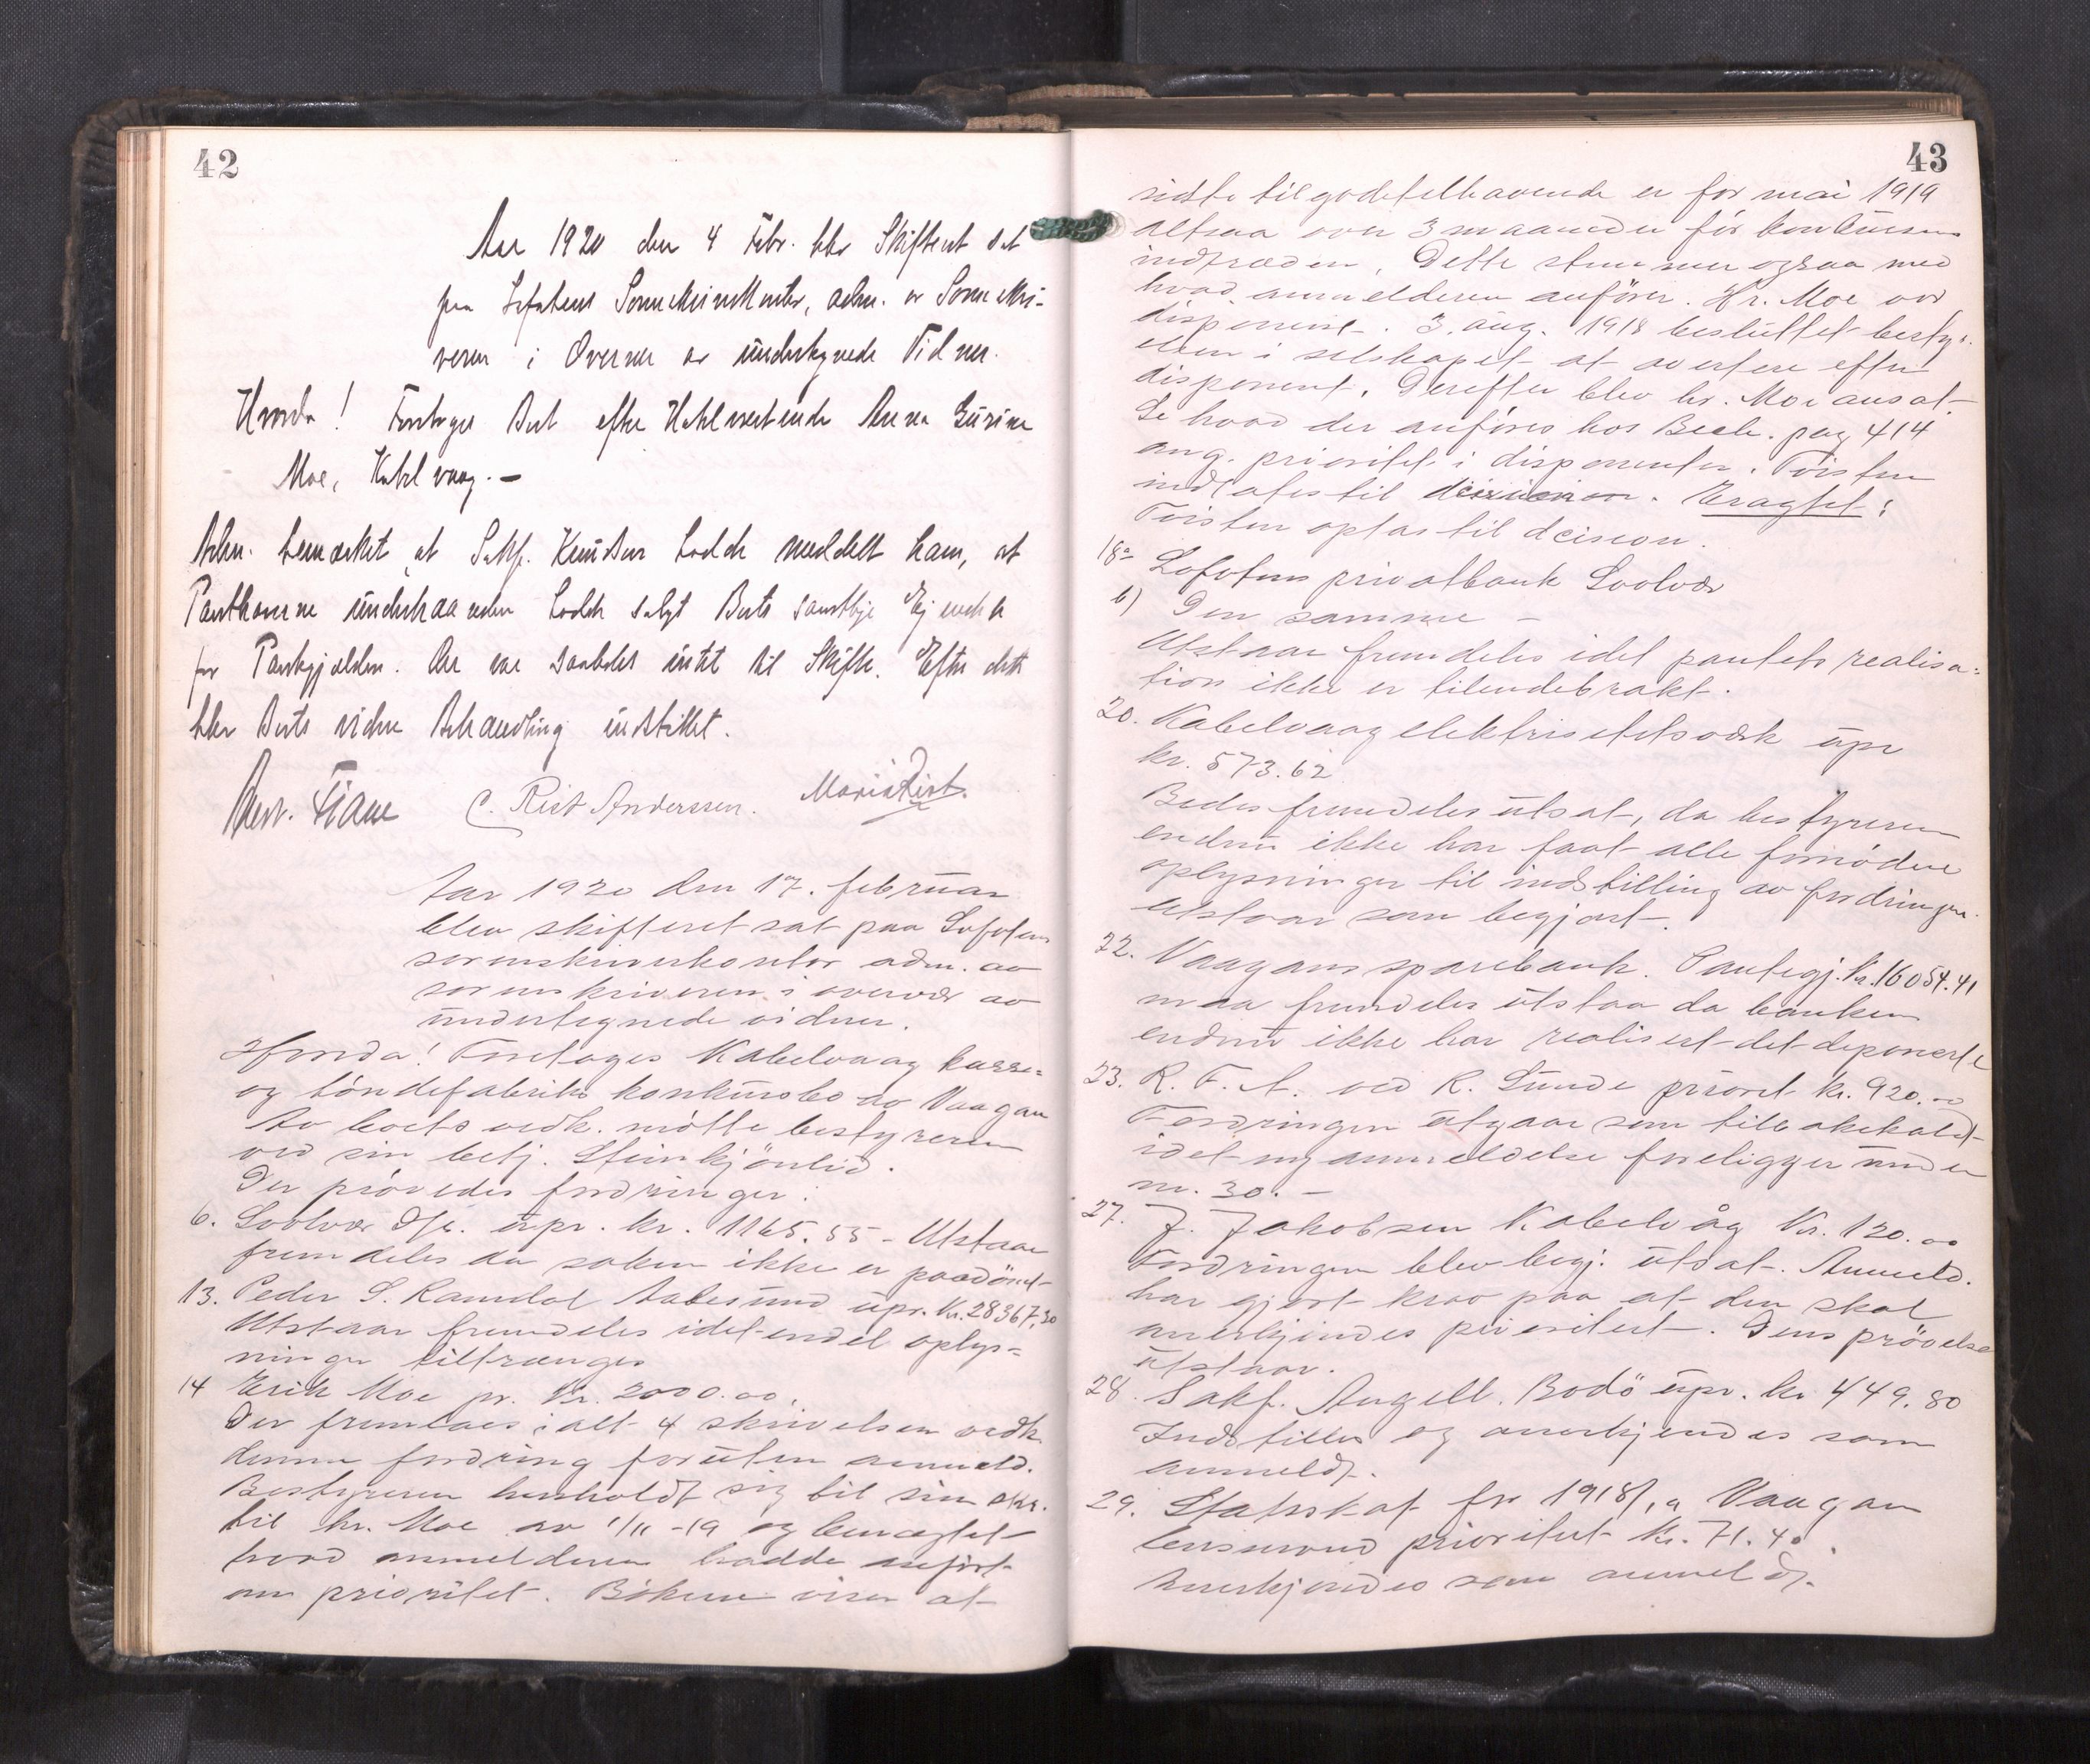 42
Aar 1920 den 4 Febr. blev Skifteret sat
paa Lofotens Sorenskriverkontor, adm. av Sorenskri-
veren i Overvær av undertegnede Vidner.
Hvorda! Foretoges Bert efter Hotelværtinde Anna Gurine
Moe, Kabelvaag. -
Adm. bemærket, at Sakf. Knudsen hadde meddelt ham, at
Panthaverne underhaanden hadde solgt Boets samtlige Eiendele
for Pantegjælden. Der var saaledes intet til Skifte. Efter dette
blev Boets videre Behandling indstillet.
C. Rist Anderssen. Maria Rist.
Aar 1920 den 17. februar
blev skifteret sat paa Lofotens
sorenskriverkontor adm. av
sorenskriveren i overvær av
undertegnede vidner.
Hvorda! Foretoges Kabelvaag kasse=
og töndefabriks konkursbo av Vaagan
Av boets vedk. mötte bestyreren
ved sin betj. Steinkjönlid.
Der prövedes fordringer:
6. Svolvær D/s. upr. kr. 1165.55 - Utstaar
fremdeles da saken ikke er paadömt
13. Peder S. Ramdal Aalesund upr. Kr. 28367,30
Utstaar fremdeles idet endel oplys=
ninger tiltrænges
14 Erik Moe pr. Kr. 2000.00.
Der fremlaes i alt 4 skrivelser vedk.
denne fordring foruten anmeld.
Bestyreren henholdt sig til sin skr.
til hr. Moe av 1/11 -19 og benægtet
hvad anmelderen hadde anfört
om prioritet. Bökene viser at
43
sidste tilgodetilhavende er for mai 1919
altsaa over 3 maaneder för konkursens
indtræden. Dette stemmer ogsaa med
hvad anmelderen anförer. Hr. Moe var
disponent. 3. aug. 1918 besluttet besty-
elsen i selskapet at avertere efter
disponent. Derefter blev hr. Moe ansat.
Se hvad der anföres hos Beeh. pag 414
ang. prioritet i disponenter. Tvisten
indlates til decision. Eragtet:
Tvisten optas til dcision.
18a Lofotens privatbank Svolvær
b) Den samme -
Utstaar fremdeles idet pantets realisa=
tion ikke er tilendebrakt.
20. Kabelvaag elektrisitetsværk upr
kr. 573.62
Bedes fremdeles utsat, da bestyreren
endnu ikke har faat alle fornödne
oplysninger til indstilling av fordringen.
Utstaar som begjært.
22. Vaagans sparebank. Pantegj. Kr. 16054.41
maa fremdeles utstaa da banken
endnu ikke har realisert det deponerte
23. R. F. A. ved R. Sunde priorit kr. 920.00
Fordringen utgaar som tilbakekaldt
idet ny anmeldelse foreligger under
nr. 30. -
27. J. Jakobsen Kabelvåg Kr. 120.00
Fordringen blev begj. utsat. Anmeld.
har gjort krav paa at den skal
anerkjendes prioritert. Dens prövelse
utstaar.
28. Sakf. Angell. Bodö upr. kr 449.80
Indstilles og anerkjendes som
anmeldt.
29. Statsskat for 1918/19 Vaagan
lensmand prioritet Kr. 71.40.
Anerkjendes som anmeldt.